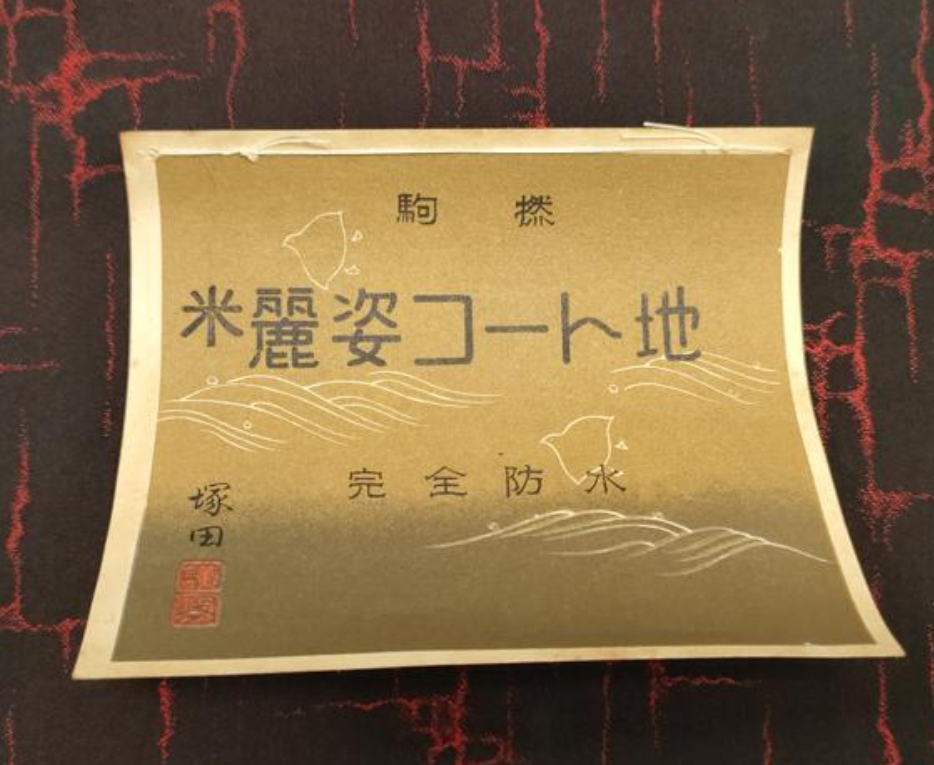 駒撚
米麗姿コート地
完全防水
塚田